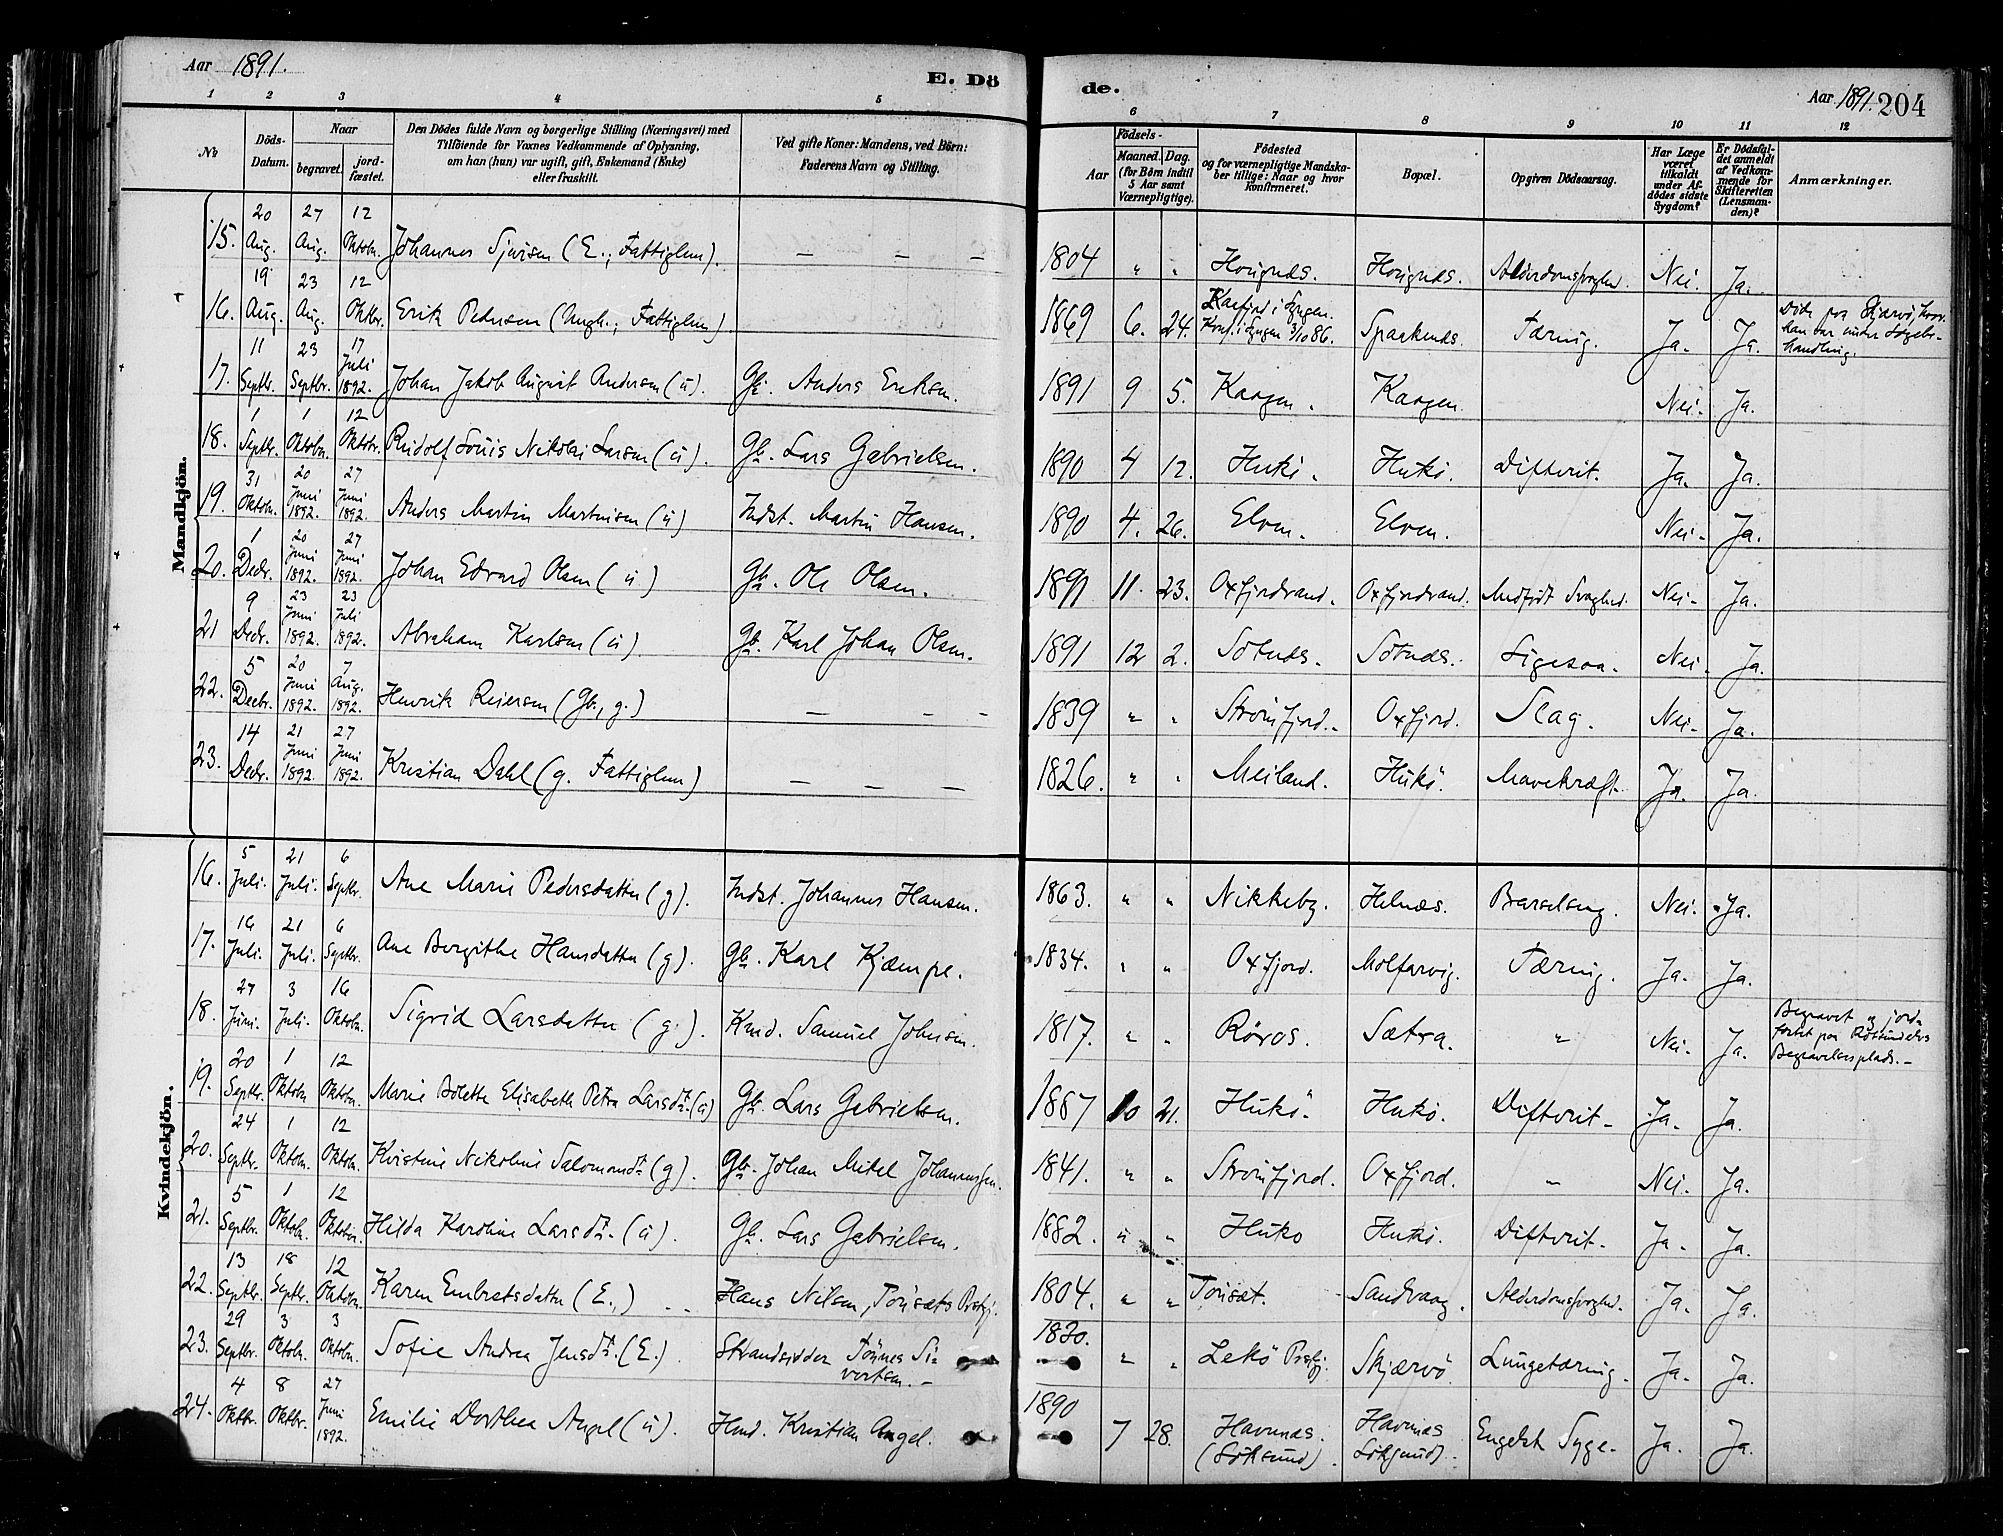 Aar 1891. E. Dö
de. Aar 1891. 204
1 2 3 4 5
6 7 8 9 10 11 12
№ Döds-Datum. Naar begravet. jord-fæstet. Den Dödes fulde Navn og borgerlige Stilling (Næringsvei) med Tilföiende for Voxnes Vedkommende af Oplysning, om han (hun) var ugift, gift, Enkemand (Enke) eller fraskilt. Ved gifte Koner: Mandens, ved Börn: Faderens Navn og Stilling.
Födsels- Aar Maaned. Dag. (for Börn indtil 5 Aar samt Værnepligtige). Födested og for værnepligtige Mandskaber tillige: Naar og hvor konfirmeret. Bopæl. Opgiven Dödsaarsag. Har Læge været tilkaldt under Afdödes sidste Sygdom? Er Dödsfaldet anmeldt af Vedkommende for Skifteretten (Lensmanden)? Anmærkninger.
Mandkjön.
15. 20 Aug. 27 Aug. 12 Oktobr. Johannes (E., Fattiglem). — — — 1804 " " Hougnæs. Hougnæs. Nei. Ja.
16. 19 Aug. 23 Aug. 12 Oktbr. Erik Pedersen (Ungk., Fattiglem) 1869 6. 24. Kaafjord i Lyngen. Konf. i Lyngen 3/10 86. Spaakenæs. Tæring. Ja. Ja. Döde paa Skjærvö, hvor han var under Lægebehandling.
17. 11 Septbr. 23 Septbr. 17 Juli 1892. Johan Jakob August Andersen (u). Gb. Anders Eriksen. 1891 9 5. Kaagen. Kaagen. Nei. Ja.
18. 1 Septbr. 1 Oktobr. 12 Oktobr. Rudolf Louis Nikolai Larsen (u). Gb. Lars Gabrielsen. 1890 4 12. Hukö. Hukö. Difterit. Ja. Ja.
19. 31 Oktobr. 20 Juni 1892. 27 Juni 1892. Anders Martin Martinsen (u) Indst. Martin Hansen. 1890 4. 26. Elven. Elven. Nei. Ja.
20. 1 Decbr. 20 Juni 1892. 27 Juni 1892. Johan Edvard Olsen (u) Gb. Ole Olsen. 1891 11. 23. Oxfjordvand. Oxfjordvand. Medfödt Svaghed. Nei. Ja.
21 9 Decbr. 23 Juni 1892. 23 Juli 1892. Abraham Karlsen (u). Gb. Karl Johan Olsen. 1891 12 2. Sötnæs. Sötnæs. Ligesaa. Nei. Ja.
22. 5 Decbr. 20 Juni 1892. 7 Aug. 1892. Henrik Reiersen (Gb., g.) — — — 1839 " " Straumfjord. Oxfjord. Slag. Nei. Ja.
23. 14 Decbr. 21 Juni 1892. 27 Juni 1892. Kristian Dahl (g. Fattiglem) — — — 1826. " " Meiland. Hukö. Mavekræft. Ja. Ja.
Kvindekjön.
16. 5 Juli. 21 Juli. 6 Septbr. Ane Marie Pedersdatter (g). Indst. Johannes Hansen. 1863. " " Nikkeby. Helnæs. Barselseng. Nei. Ja.
17. 16 Juli. 21 Juli. 6 Septbr. Ane Bergithe Hansdatter (g). Gb. Karl Kjæmpe. 1834. " " Oxfjord. Molfarvig. Tæring. Ja. Ja.
18. 27 Juni. 3 Juli. 16 Oktobr. Sigrid Larsdatter (g.). Kmd. Samuel Johnsen. 1817. " " Röros. Sætra. " Nei. Ja. Begravet og jordfæstet paa Rotsundelvs Begravelsesplads.
19. 20 Septbr. 1 Oktobr. 12 Oktobr. Marie Bolette Elisabeth Petra Larsdtr. (u) Gb. Lars Gabrielsen. 1887 10 21. Hukö. Hukö. Difterit. Ja. Ja.
20. 24 Septbr. 1 Oktobr. 12 Oktobr. Kristine Nikoline Salomonsdtr. (g). Gb. Johan Mikel Johannessen. 1841. " " Straumfjord. Oxfjord. " Nei. Ja.
21. 5 Septbr. 1 Oktobr. 12 Oktober. Hilda Karoline Larsdtr. (u). Gb. Lars Gabrielsen. 1882. " " Hukö Hukö. Difterit. Ja. Ja.
22. 13 Septbr. 18 Septbr. 12 Oktobr. Karen Embretsdatter (E.) Hans Nilsen, Tönsæts Prstgj. 1804. " " Tönsæt. Sandvaag. Alderdomssvaghed. Ja. Ja.
23. 29 Septbr. 3 Oktobr. 3 Oktobr. Sofie Andrea Jensdtr. (E.). Strandsidder Tönnes Sivertsen. 1830. " " Lekö Prstgj. Skjærvö Lungetæring. Ja. Ja.
24. 4 Oktbr. 8 Oktbr. 27 Juni 1892. Emilie Dorthea Angel (u). Hmd. Kristian Angel. 1890 7 28. Havnnæs. (Löksund). Havnnæs Löksund). Engelsk Syge. Ja. Ja.